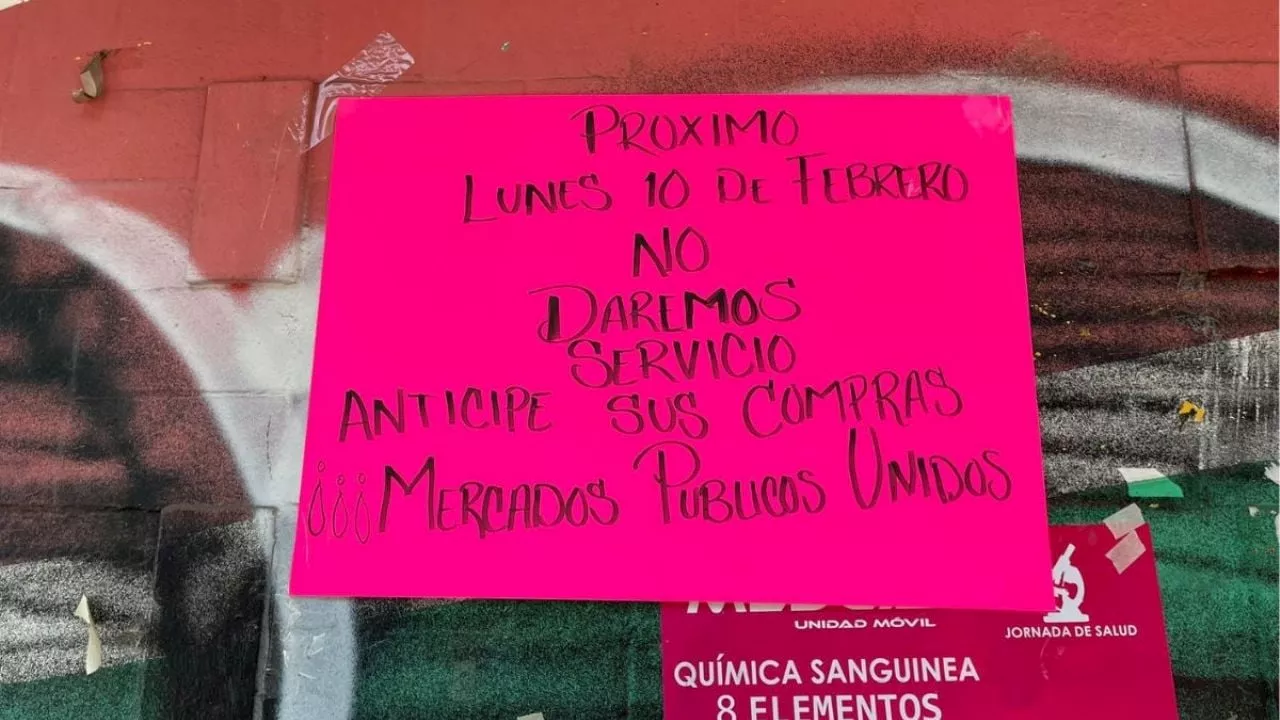 PROXIMO
LUNES 10 DE FEBRERO
NO
DAREMOS
SERVICIO
ANTICIPE SUS COMPRAS
¡¡¡MERCADOS PUBLICOS UNIDOS
UNIDAD MÓVIL
JORNADA DE SALUD
QUÍMICA SANGUINEA
8 ELEMENTOS